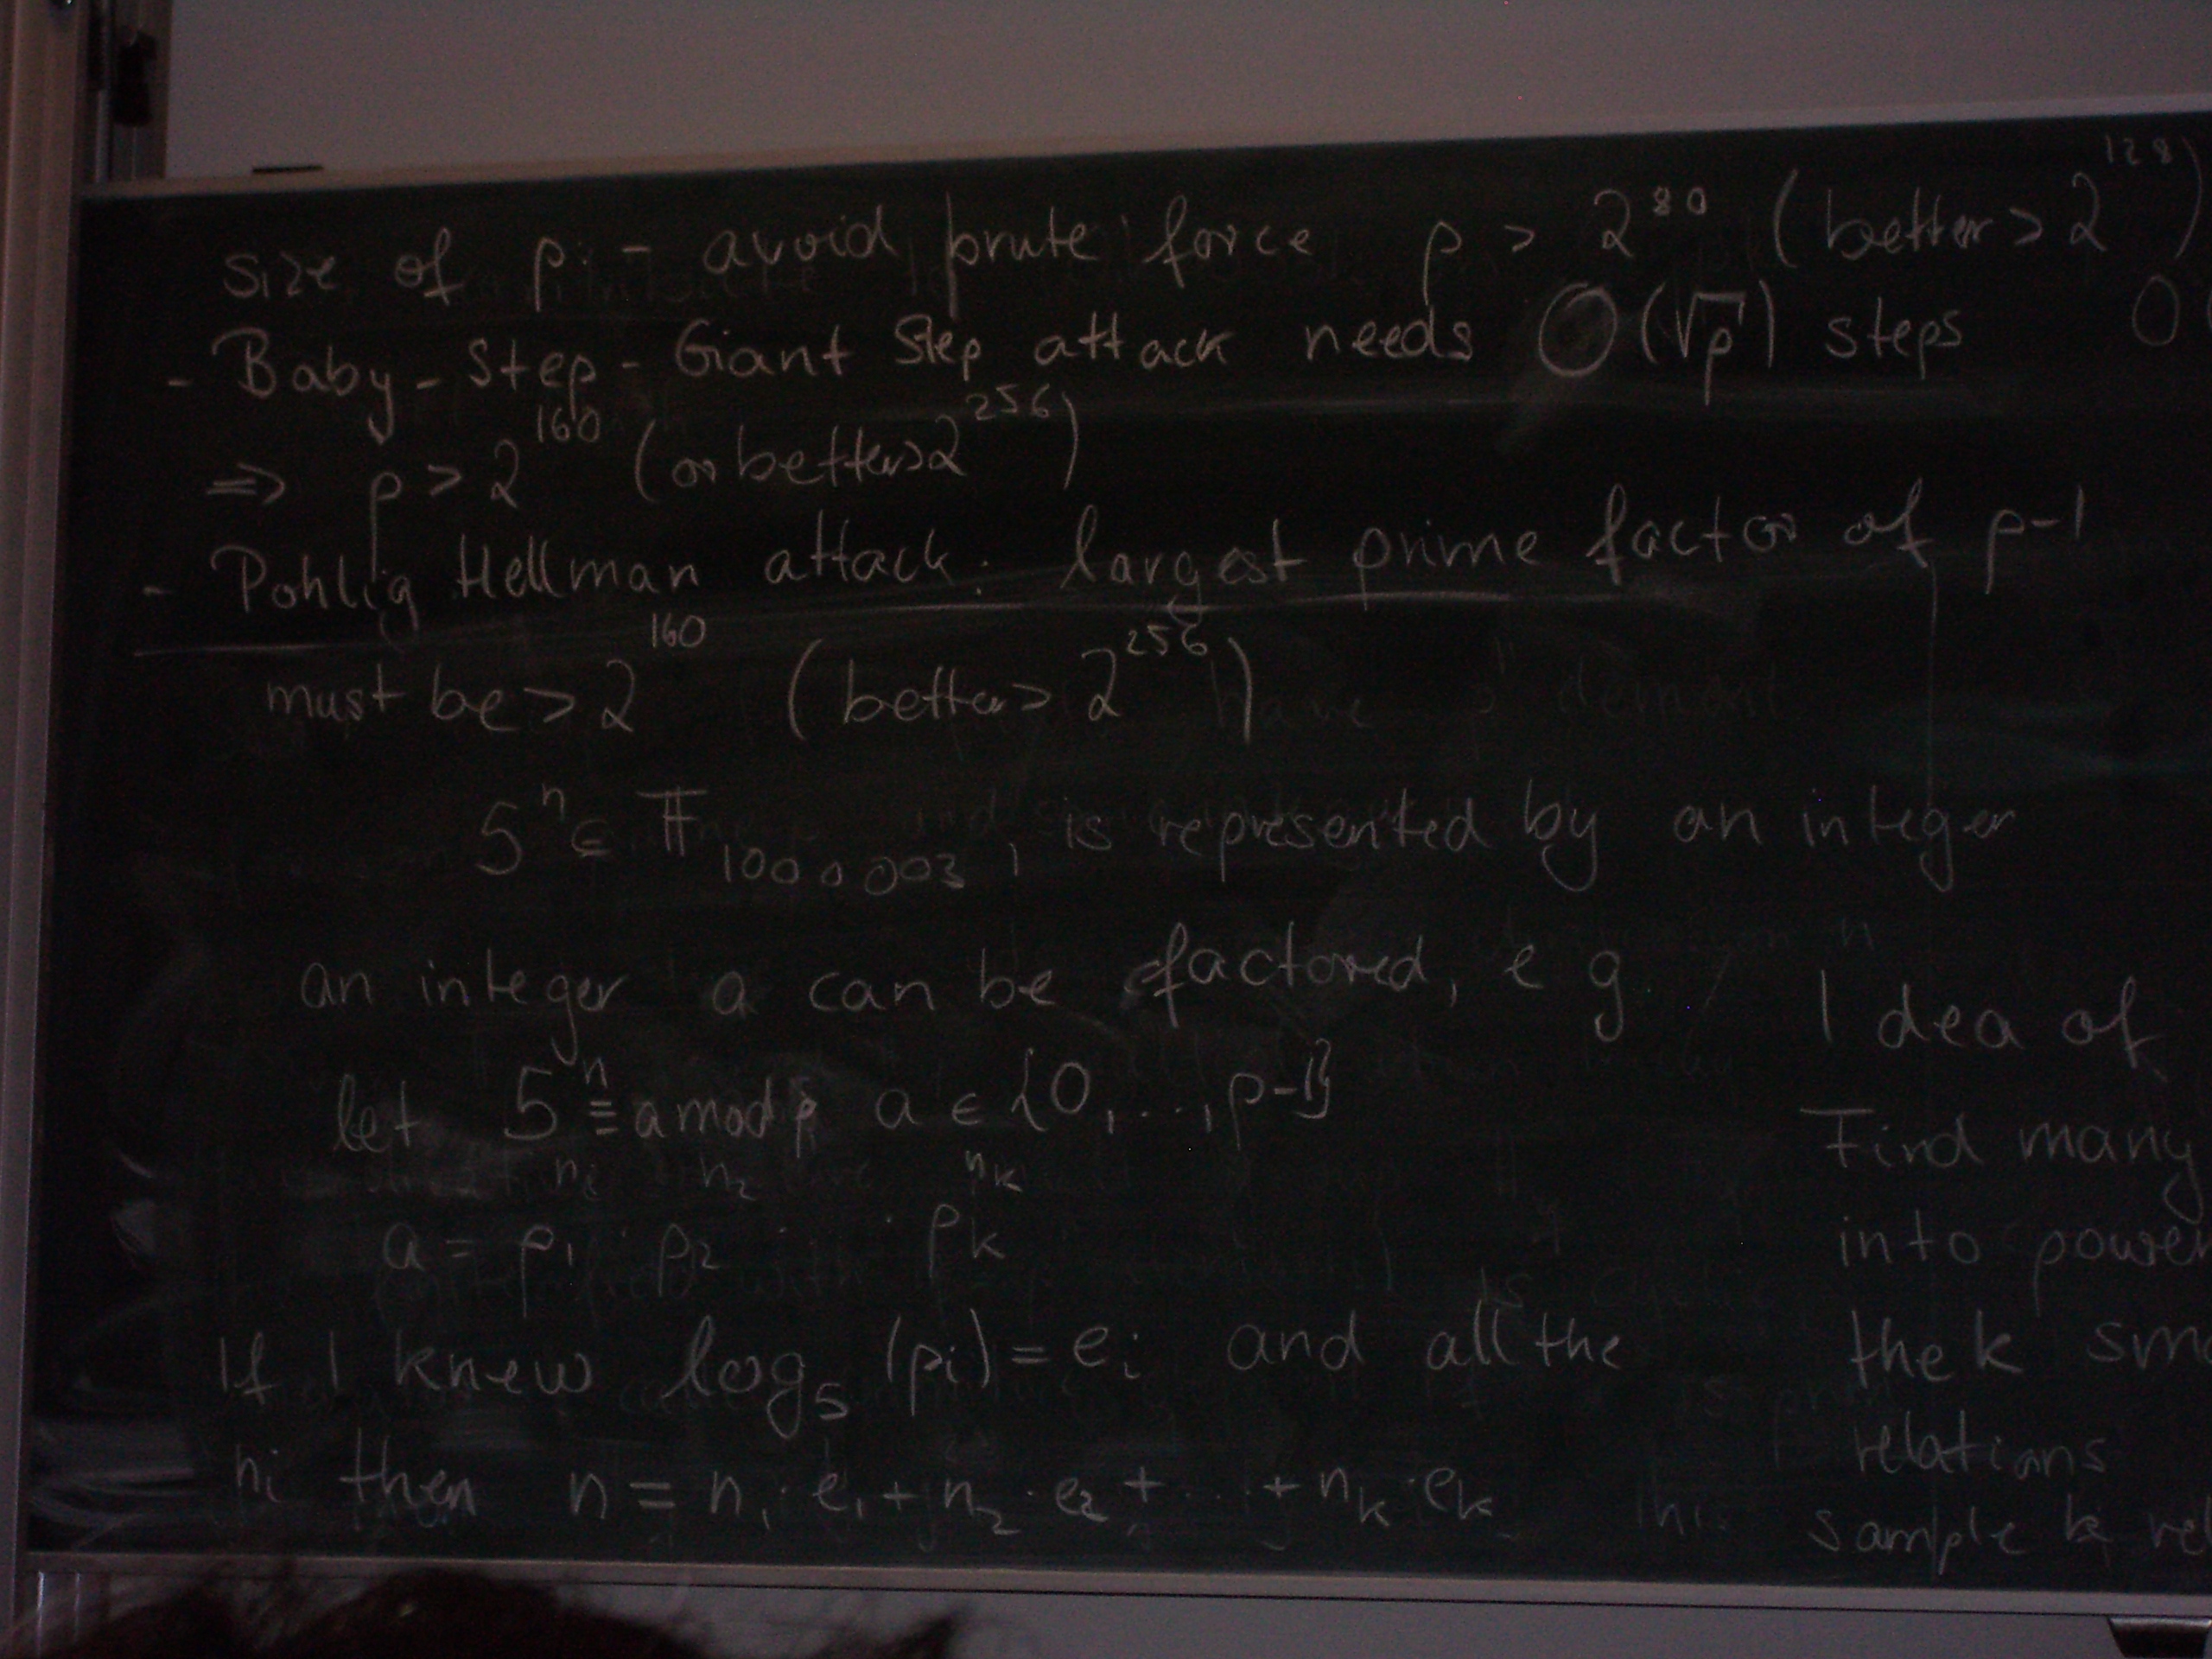 size of p: - avoid brute force p > 2^80 (better > 2^128)
- Baby-Step-Giant Step attack needs O(√p) steps O(
⇒ p > 2^160 (or better > 2^256)
- Pohlig Hellman attack: largest prime factor of p-1
must be > 2^160 (better > 2^256)
5^n ∈ F_1000003, is represented by an integer
an integer a can be factored, e g
let 5^n ≡ a mod p a ∈ {0, ..., p-1}
a = p_1^n_1 · p_2^n_2 · · p_k^n_k
If I knew log_5 (p_i) = e_i and all the
n_i then n = n_1 · e_1 + n_2 · e_2 + ... + n_k · e_k
Idea of
Find many
into power
the k sm
relations
sample k re